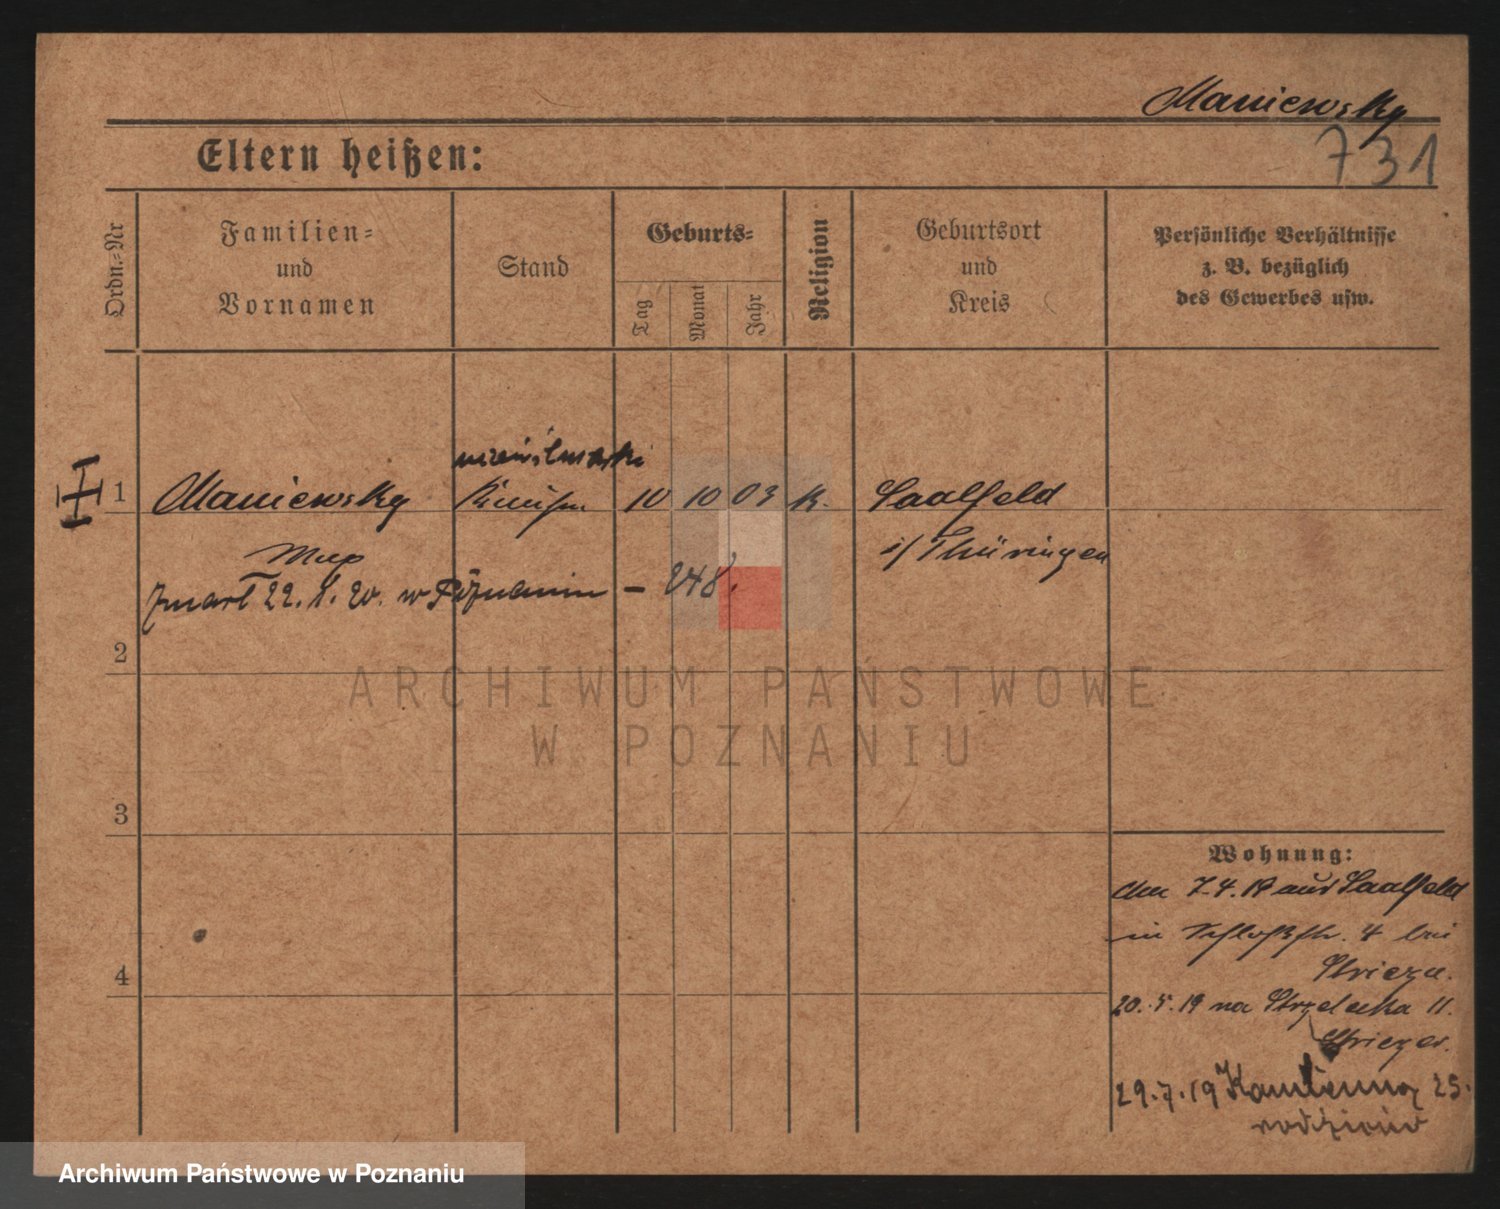 Maniewsky
731
Eltern heißen:
Ordn.-Nr
Familien-
und
Vornamen
Stand
Geburts-
Tag
Monat
Jahr
Religion
Geburtsort
und
Kreis
Persönliche Verhältnisse
z. B. bezüglich
des Gewerbes usw.
1 Maniewsky 10 10 03 k. Saalfeld
i/Thüringen
Max
zmarł 22. 1. 20. w Poznaniu – 248.
2
ARCHIWUM PAŃSTWOWE
W POZNANIU
3
4
Wohnung:
7.4.19 aus Saalfeld
in Schloßstr. 4 bei
20.5.19 na Strzelecka 11.
29.7.19 Kamienna 25.
rodziców
Archiwum Państwowe w Poznaniu